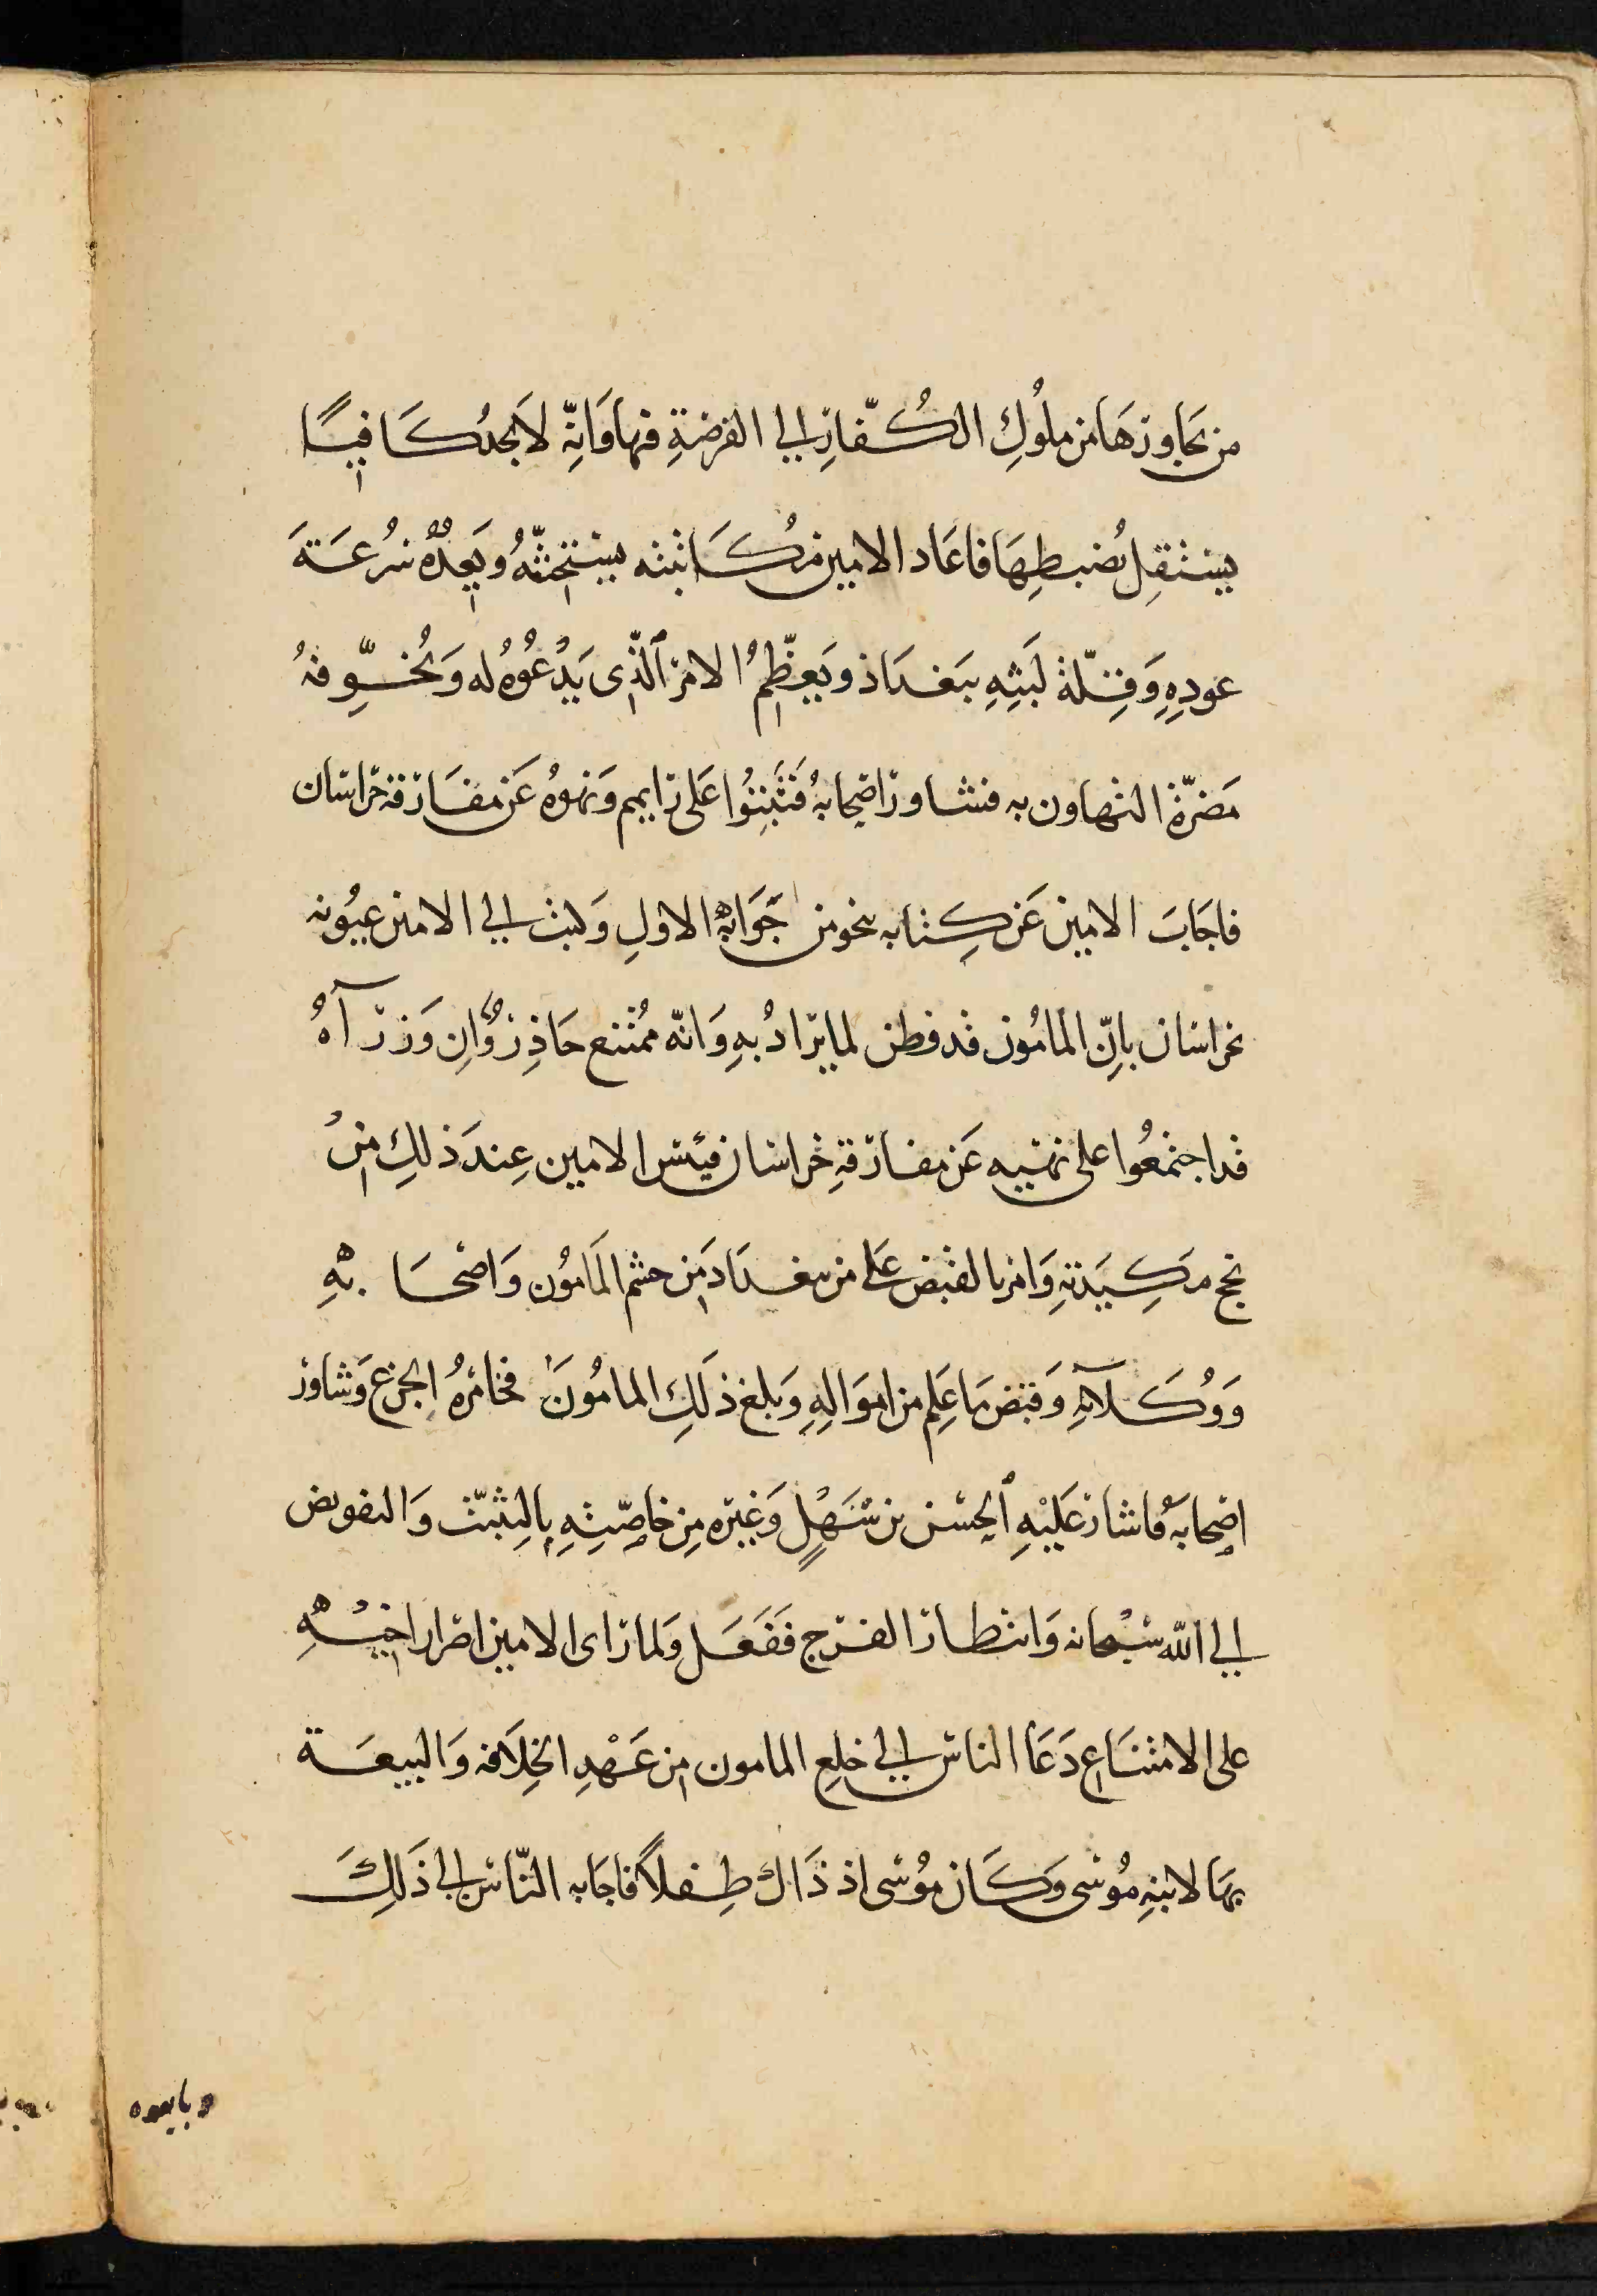 من يجاوزها من ملُوكِ الكُفّارِ الي الفرصَةِ فيها وَانّه لاَ يجدُ كَافيًا
يستقِل بضبطِهَا فاعَاد الامين مُكَاتبته يستحثّهُ ويَعِدُهُ سُرعَةَ
عودِهِ وَقِلّة لَبثِهِ ببَغدَاذ ويعظّمُ الامرَ الّذِي يَدْعُوهُ له وَيُخَوِّفهُ
مَضرّةَ التهاون به فشاورَ اصحابهُ فَثَبتُوا عَلى رايهم وَنهوهُ عَن مفَارقة خراسَان
فاجَابَ الامين عَن كِتابه بنحو من جَوَابِهِ الاولِ وَكتبَ الي الامين عيُونه
بخراسَان بانّ المَامُون قد فطن لما يرَادُ بهِ وَانّه مُمْتنع حَاذِرٌ وَانِ وَزرَآهُ
قد اجتمعُوا على نهيه عَن مفارقةِ خراسَان فيئسَ الامين عِندَ ذلِكِ مِنْ
نجح مَكِيَدتهِ وَامرَ بالقبَض عَلى من ببغدَادَ مِن حشم المَامُون وَاصْحَابهِ
وَوُكَلآئهِ وَقبَض مَا عَلِم من امْوَالِهِ وَبلغ ذَلِكَ المامُونَ فخامَرهُ الجزعُ وَشاورَ
اصحابهُ فاشارَ عَلَيْهِ الحسَن بن سَهْلٍ وَغيرَه مِن خاصّتِهِ بالتثبّت وَالتفويض
الي الله سُبْحانه وَانتظارَ الفرَج فَفَعَل وَلما رَاى الامين اصْرارَ اخيْهِ
على الامتنَاع دَعَا الناسَ الي خلعِ المامون من عَهْدِ الخِلاَفه وَالبيعَة
بهَا لابنهِ مُوسَى وَكَان مُوْسَى اذ ذَاك طِفلاً فاجَابه النّاسَ الي ذَلِكَ
وبايعوه